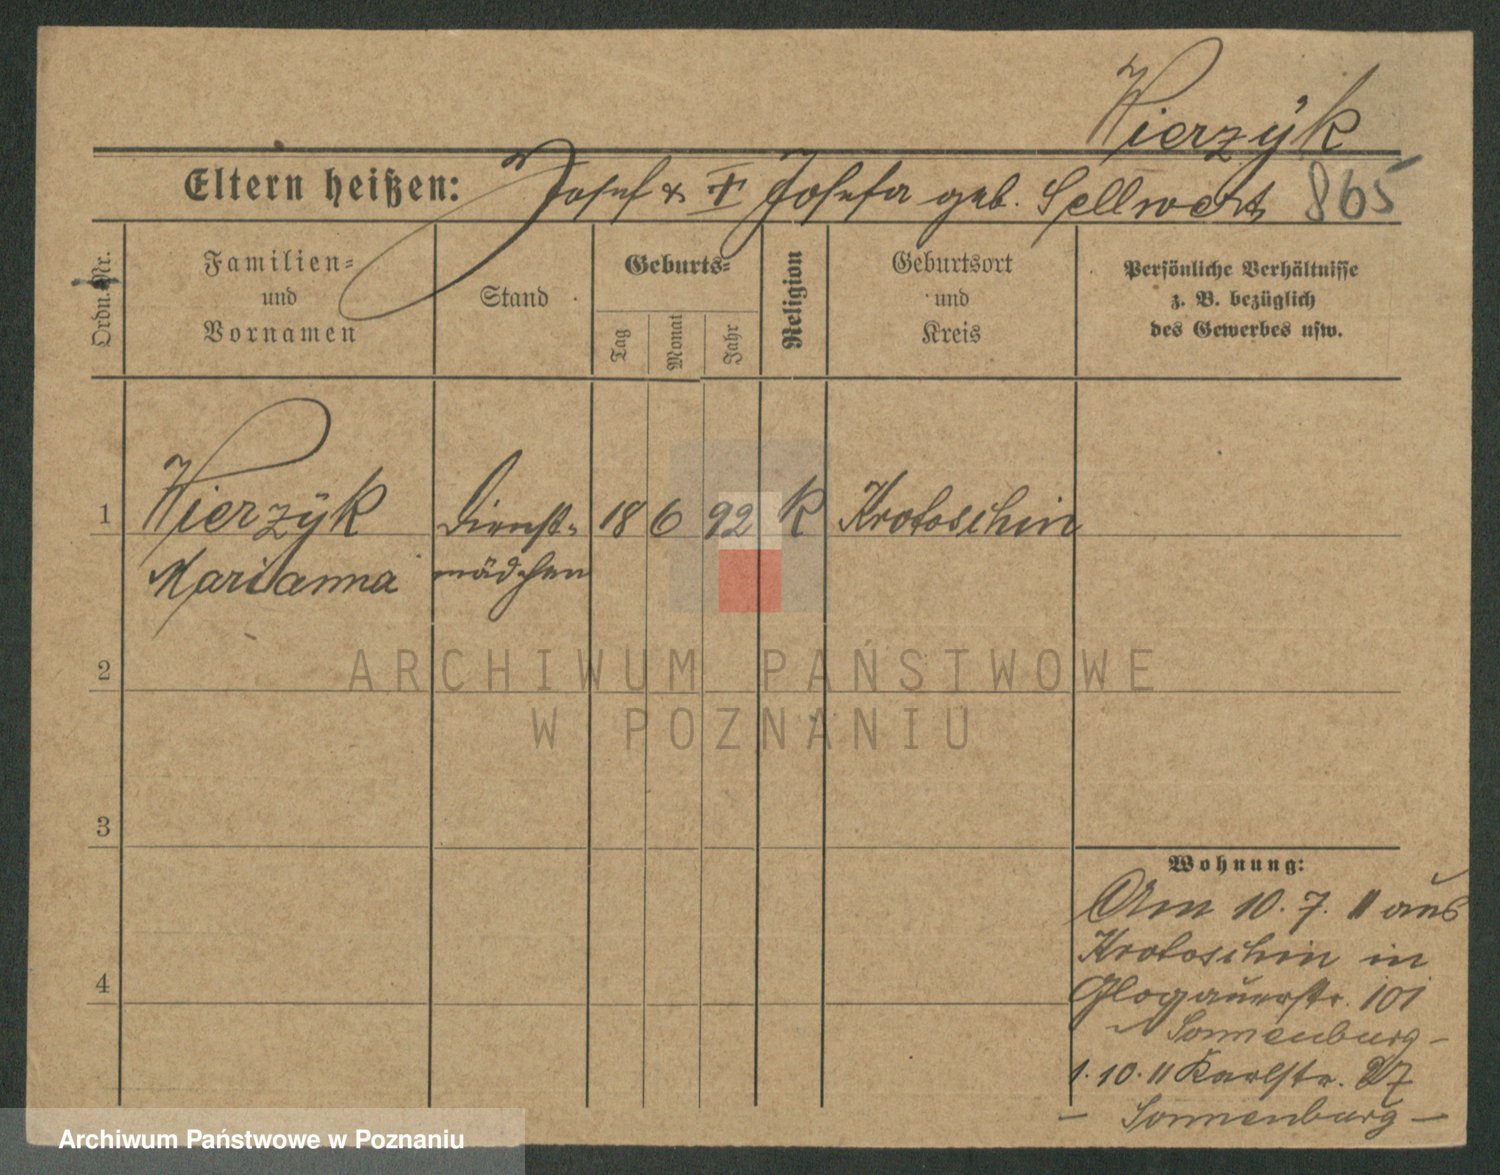 Wierzÿk
Eltern heißen: Josef & † Josefa geb. Sellwert 865
Ordn. Nr.
Familien-
und
Vornamen
Stand
Geburts-
Tag
Monat
Jahr
Religion
Geburtsort
und
Kreis
Persönliche Verhältnisse
z. B. bezüglich
des Gewerbes usw.
1 Wierzÿk Dienst- 18 6 92 K Krotoschin
Marianna mädchen
2
3
Wohnung:
Am 10. 7. 11 aus
Krotoschin in
4
Glogauerstr. 101
~ Sonnenburg -
1. 10. 11 Karlstr. 27
- Sonnenburg -
ARCHIWUM PAŃSTWOWE
W POZNANIU
Archiwum Państwowe w Poznaniu